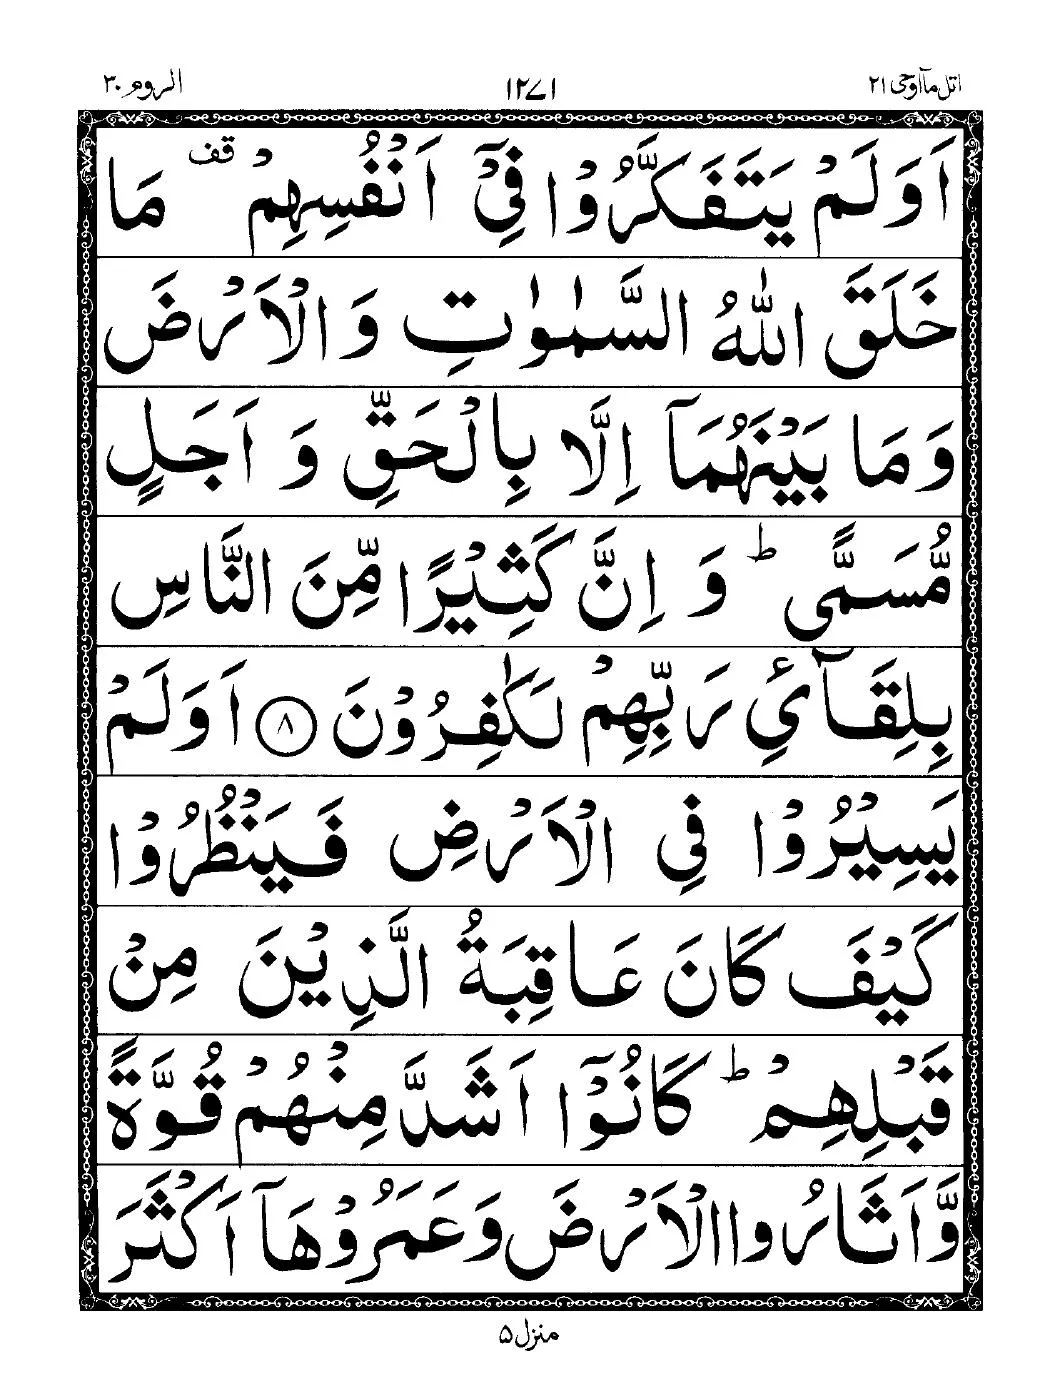 اتل مآ اوحی ۲۱ ۱۲۷۱ الروم ۳۰
اَوَلَمْ يَتَفَكَّرُوْا فِيْٓ اَنْفُسِهِمْ قف مَا
خَلَقَ اللّٰهُ السَّمٰوٰتِ وَ الْاَرْضَ
وَ مَا بَيْنَهُمَآ اِلَّا بِالْحَقِّ وَ اَجَلٍ
مُّسَمًّى ؕ وَ اِنَّ كَثِيْرًا مِّنَ النَّاسِ
بِلِقَآئِ رَبِّهِمْ لَكٰفِرُوْنَ ۸ اَوَلَمْ
يَسِيْرُوْا فِي الْاَرْضِ فَيَنْظُرُوْا
كَيْفَ كَانَ عَاقِبَةُ الَّذِيْنَ مِنْ
قَبْلِهِمْ ؕ كَانُوْٓا اَشَدَّ مِنْهُمْ قُوَّةً
وَّ اَثَارُوا الْاَرْضَ وَ عَمَرُوْهَآ اَكْثَرَ
منزل ۵